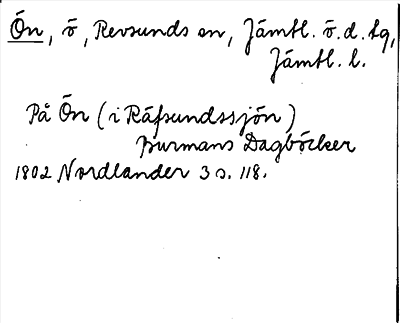 Ön, ö, Revsunds sn, Jämtl. ö. d. tg,
Jämtl. l.
På Ön (i Räfsundssjön)
Burmans Dagböcker
1802 Nordlander 3 s. 118.